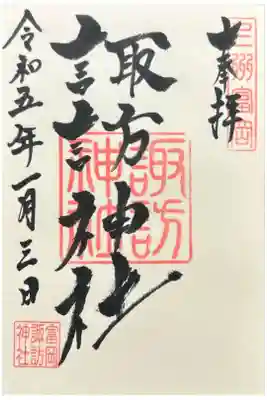 上州富岡
奉拝
諏訪神社
諏訪神社
令和五年一月三日
富岡
諏訪
神社